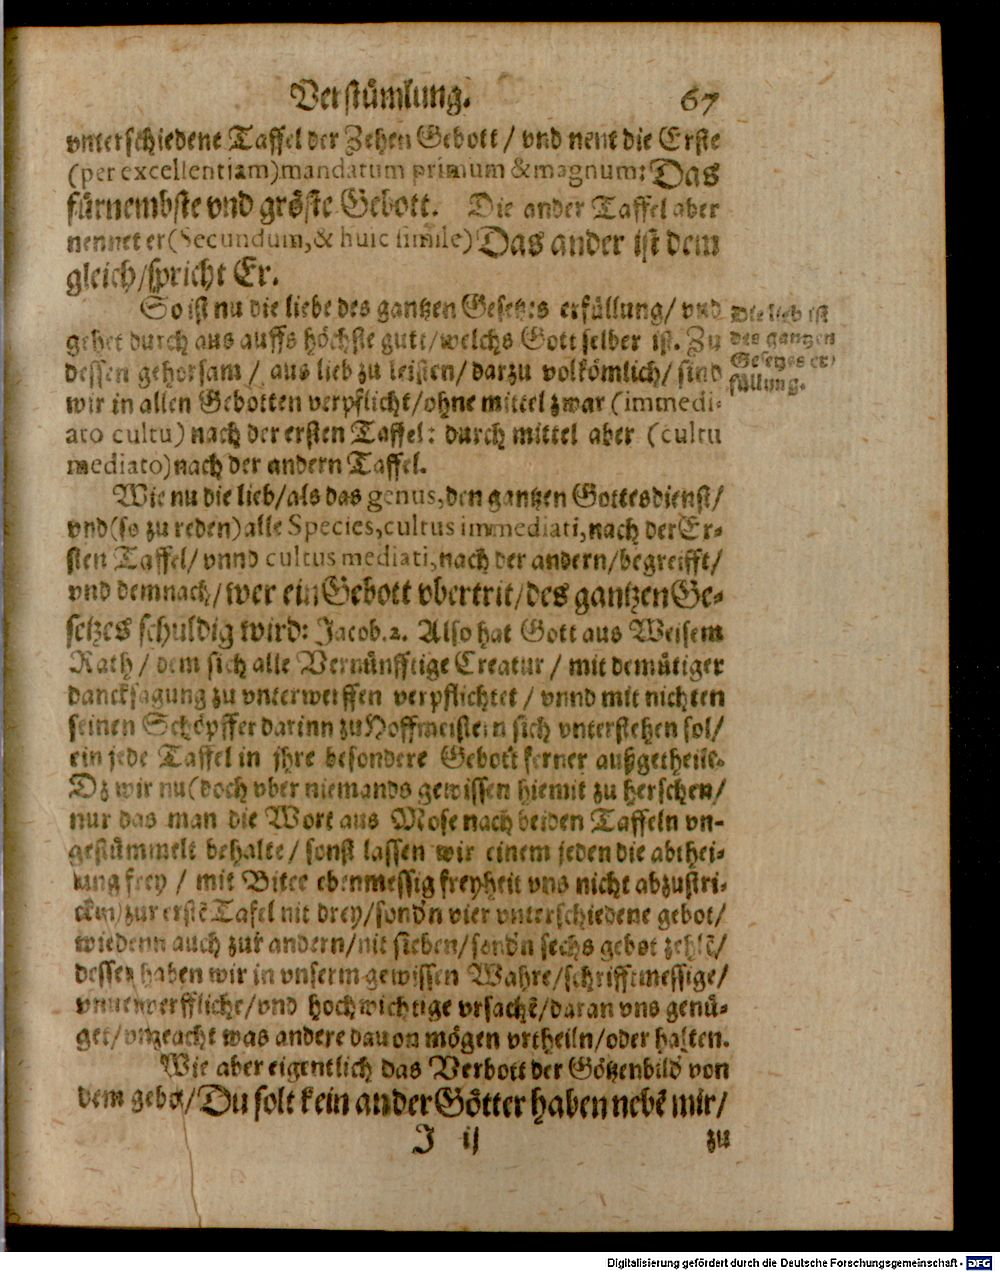 Verstümlung. 67
vnterschiedene Taffel der Zehen Gebott / vnd nent die Erste
(per excellentiam) mandatum primum & magnum: Das
fürnembste vnd gröste Gebott. Die ander Taffel aber
nennet er (Secundum, & huic simile) Das ander ist dem
gleich/spricht Er.
So ist nu die liebe des gantzen Gesetzes erfüllung/ vnd
gehet durch aus auffs höchste gutt/welchs Gott selber ist. Zu
dessen gehorsam / aus lieb zu leisten/ darzu volkömlich/ sind
wir in allen Gebotten verpflicht/ohne mittel zwar (immedi-
ato cultu) nach der ersten Taffel: durch mittel aber (cultu
mediato) nach der andern Taffel.
Die lieb ist
des gantzen
Gesetzes er-
füllung.
Wie nu die lieb/als das genus, den gantzen Gottesdienst/
vnd (so zu reden) alle Species, cultus immediati, nach der Er-
sten Taffel/ vnnd cultus mediati, nach der andern/begreifft/
vnd demnach/wer ein Gebott vbertrit/des gantzen Ge-
setzes schuldig wird: Jacob. 2. Also hat Gott aus Weisem
Rath / dem sich alle Vernünfftige Creatur / mit demütiger
dancksagung zu vnterwerffen verpflichtet / vnnd mit nichten
seinen Schöpffer darinn zu Hoffmeistern sich vnterstehen sol/
ein jede Taffel in jhre besondere Gebott ferner außgetheilt.
Dz wir nu (doch vber niemands gewissen hiemit zu herschen/
nur das man die Wort aus Mose nach beiden Taffeln vn-
gestümmelt behalte / sonst lassen wir einem jeden die abthei-
lung frey / mit Bitte ebenmessig freyheit vns nicht abzustri-
cken) zur erstē Tafel nit drey/sond'n vier vnterschiedene gebot/
wie denn auch zur andern/nit sieben/sond'n sechs gebot zehlē/
dessen haben wir in vnserm gewissen Wahre/schrifftmessige/
vnuerwerffliche/vnd hochwichtige vrsachē/daran vns genü-
get/vngeacht was andere dauon mögen vrtheiln/oder halten.
Wie aber eigentlich das Verbott der Götzenbild von
dem gebot/Du solt kein ander Götter haben nebē mir/
J ij zu
Digitalisierung gefördert durch die Deutsche Forschungsgemeinschaft - DFG